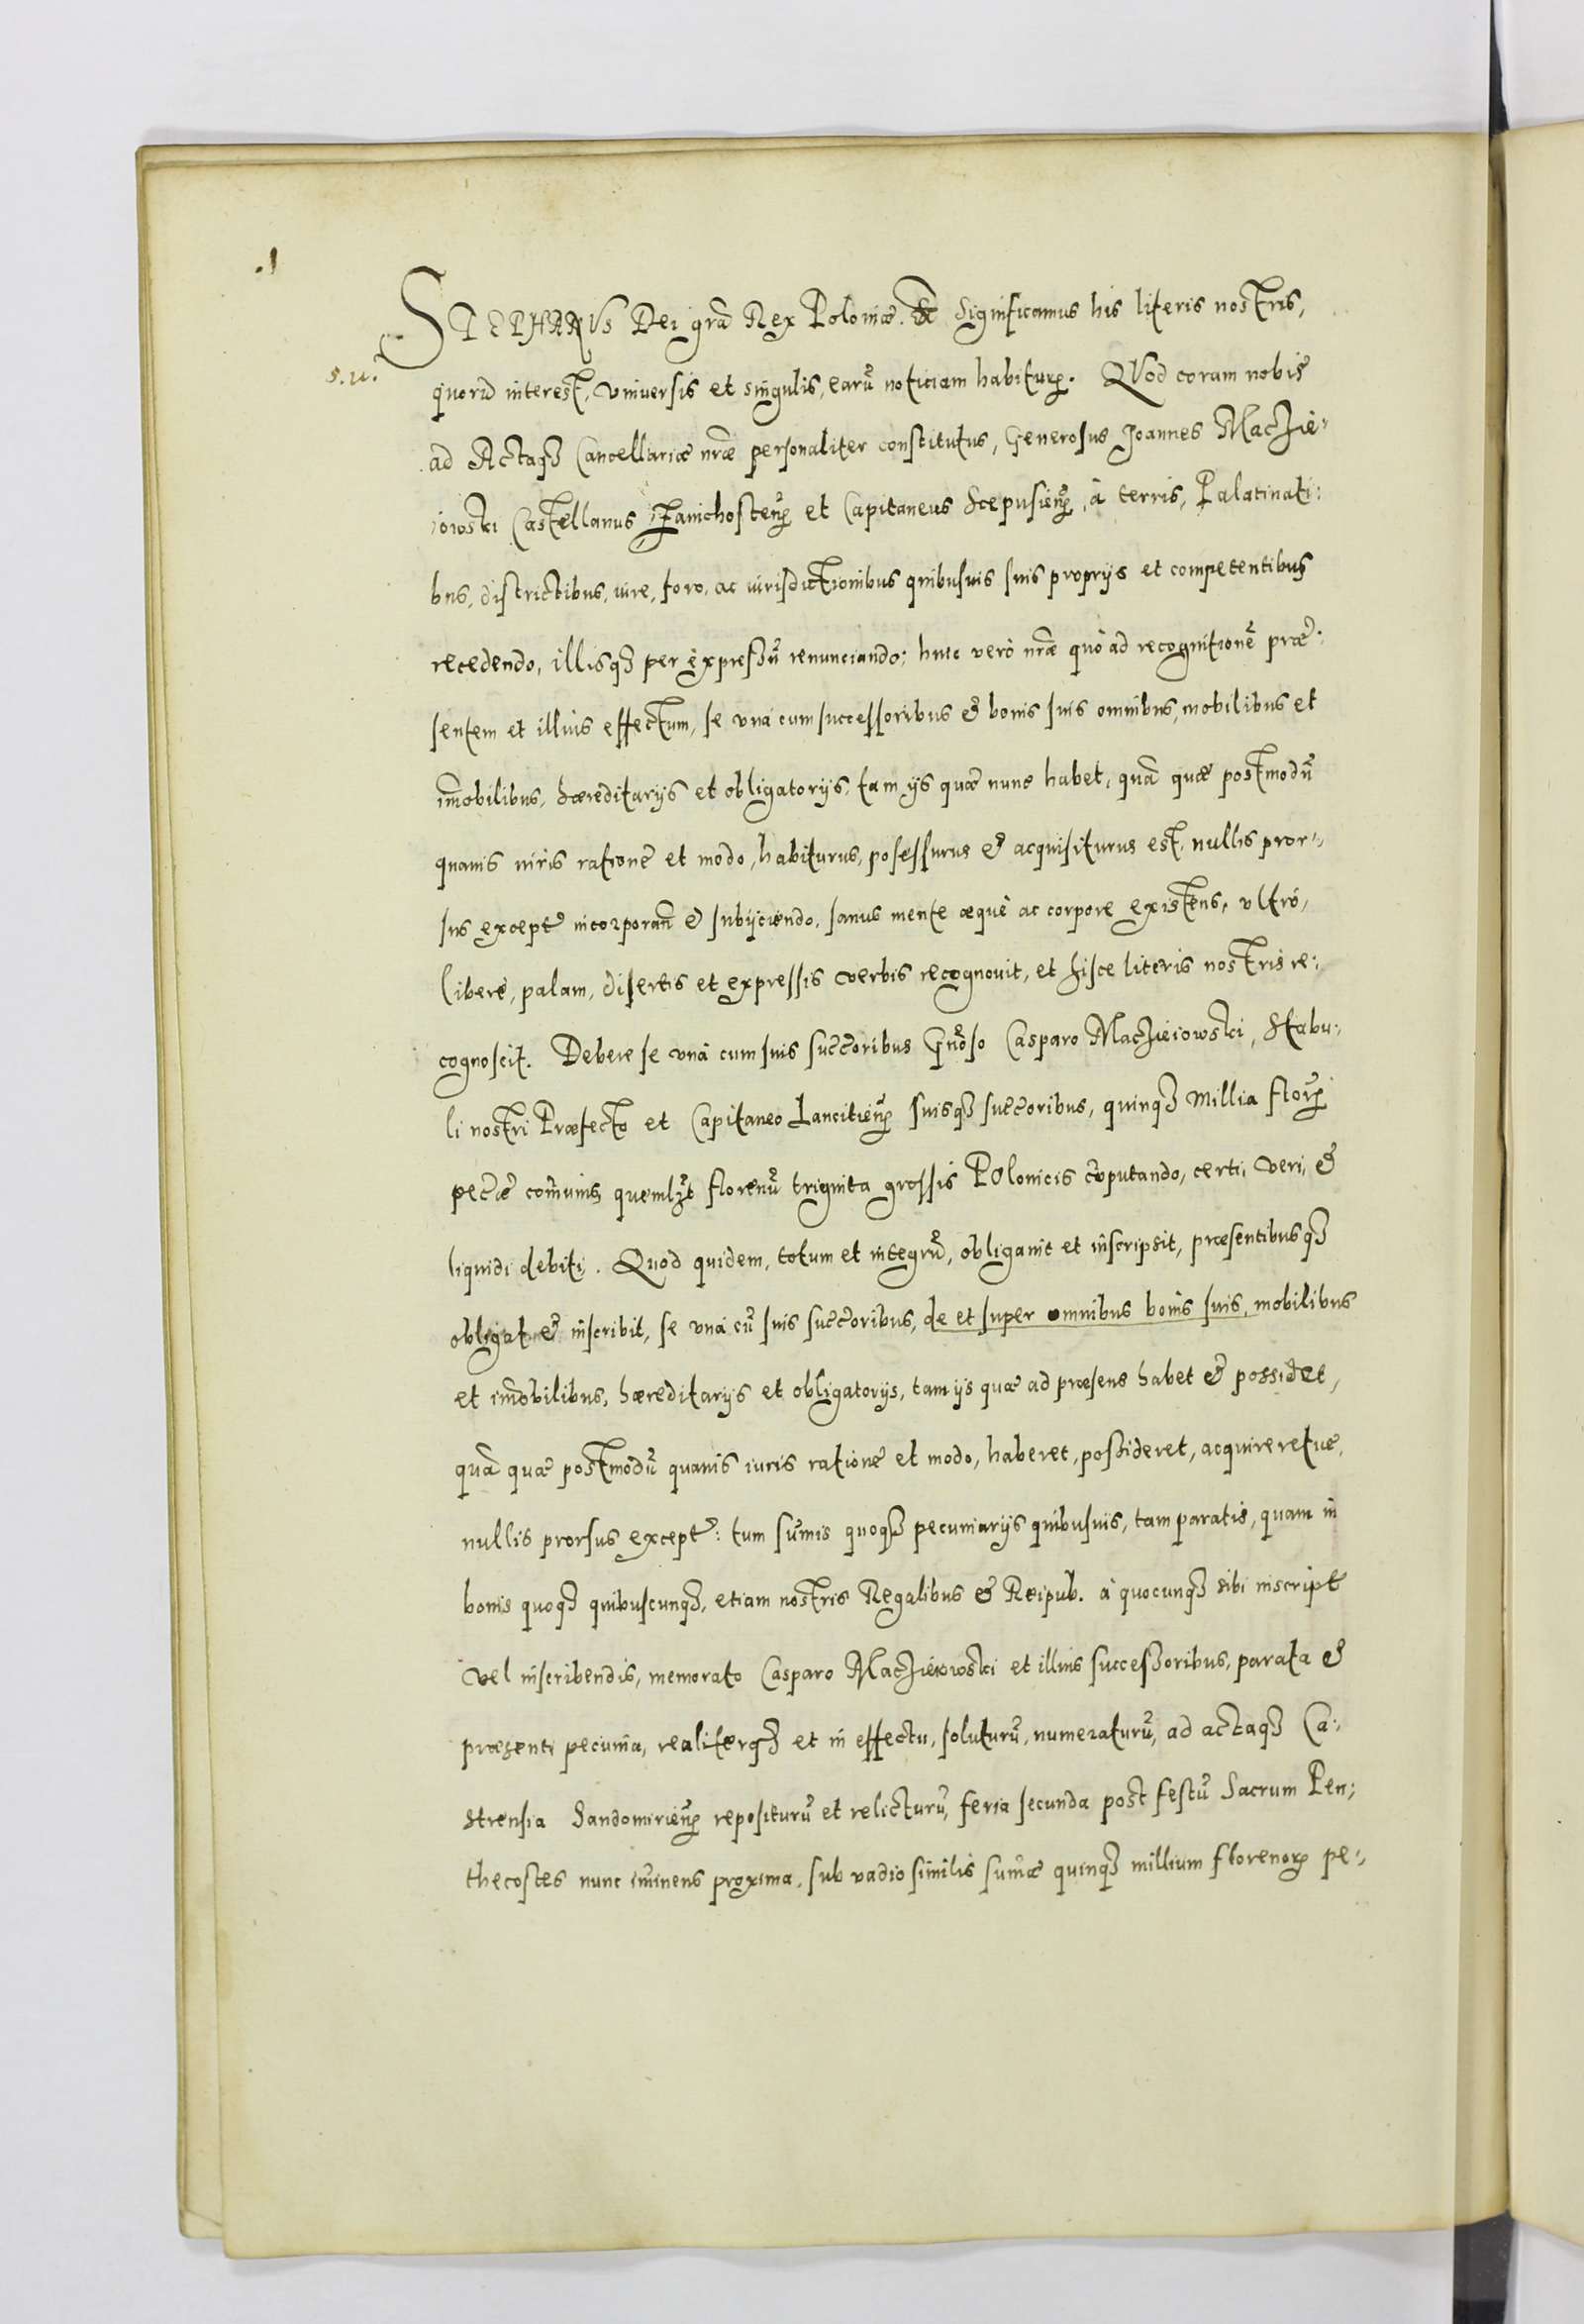 .1
STEPHANVS Dei gra᷃ Rex Poloniæ. &c Significamus his literis nostris,
s.u.
quoru᷃ interest, vniuersis et singulis, earu᷃ noticiam habiturꝝ. QVod coram nobis
ad Actaqꝫ Cancellariæ nr᷃æ personaliter constitutus, Generosus Joannes Maczie⸗
iowski Castellanus Zawichostenꝝ et Capitaneus Scepusienꝝ, à terris, Palatinati⸗
bus, districtibus, iure, foro, ac iurisdictionibus quibusuis suis proprijs et competentibus
recedendo, illisqꝫ per expressu᷃ renunciando; huic verò nr᷃æ quò ad recognitione᷃ præ⸗
sentem et illius effectum, se vnà cum successoribus & bonis suis omnibus, mobilibus et
im᷃obilibus, hæreditarijs et obligatorijs, tam ijs quæ nunc habet, qua᷃ quæ postmodu᷃
quauis iuris ratione et modo, habiturus, possessurus & acquisiturus est, nullis pror⸗
sus except᷒ incorporan᷃ & subijciendo, sanus mente æquè ac corpore existens, vltrò,
liberè, palam, disertis et expressis verbis recognouit, et hisce literis nostris re⸗
cognoscit. Debere se vnà cum suis succ᷃oribus Gn᷃oso Casparo Maczieiowski, Stabu⸗
li nostri Præfecto et Capitaneo Lancitienꝝ suisqꝫ succ᷃oribus, quinqꝫ millia florꝝ
pec᷃æ com᷃unis, quemlꝫt florenu᷃ triginta grossis Polonicis co᷃putando, certi, veri, &
liquidi debiti. Quod quidem, totum et integru᷃, obligauit et inscripsit, præsentibusqꝫ
obligat & inscribit, se vnà cu᷃ suis succ᷃oribus, de et super omnibus bonis suis, mobilibus
et im᷃obilibus, hæreditarijs et obligatorijs, tam ijs quæ ad præsens habet & possidet,
qua᷃ quæ postmodu᷃ quauis iuris ratione et modo, haberet, possideret, acquireretue,
nullis prorsus except᷒: tum sum᷃is quoqꝫ pecuniarijs quibusuis, tam paratis, quam in
bonis quoqꝫ quibuscunqꝫ, etiam nostris Regalibus & Reipub. à quocunqꝫ sibi inscript᷒
vel inscribendis, memorato Casparo Maczieiowski et illius successoribus, parata &
præsenti pecunia, realiterqꝫ et in effectu, soluturu᷃, numeraturu᷃, ad actaqꝫ Ca⸗
strensia Sandomirienꝝ reposituru᷃ et relicturu᷃, feria secunda post festu᷃ Sacrum Pen⸗
thecostes nunc im᷃inens proxima, sub vadio similis sum᷃æ quinqꝫ millium florenorꝝ pe⸗